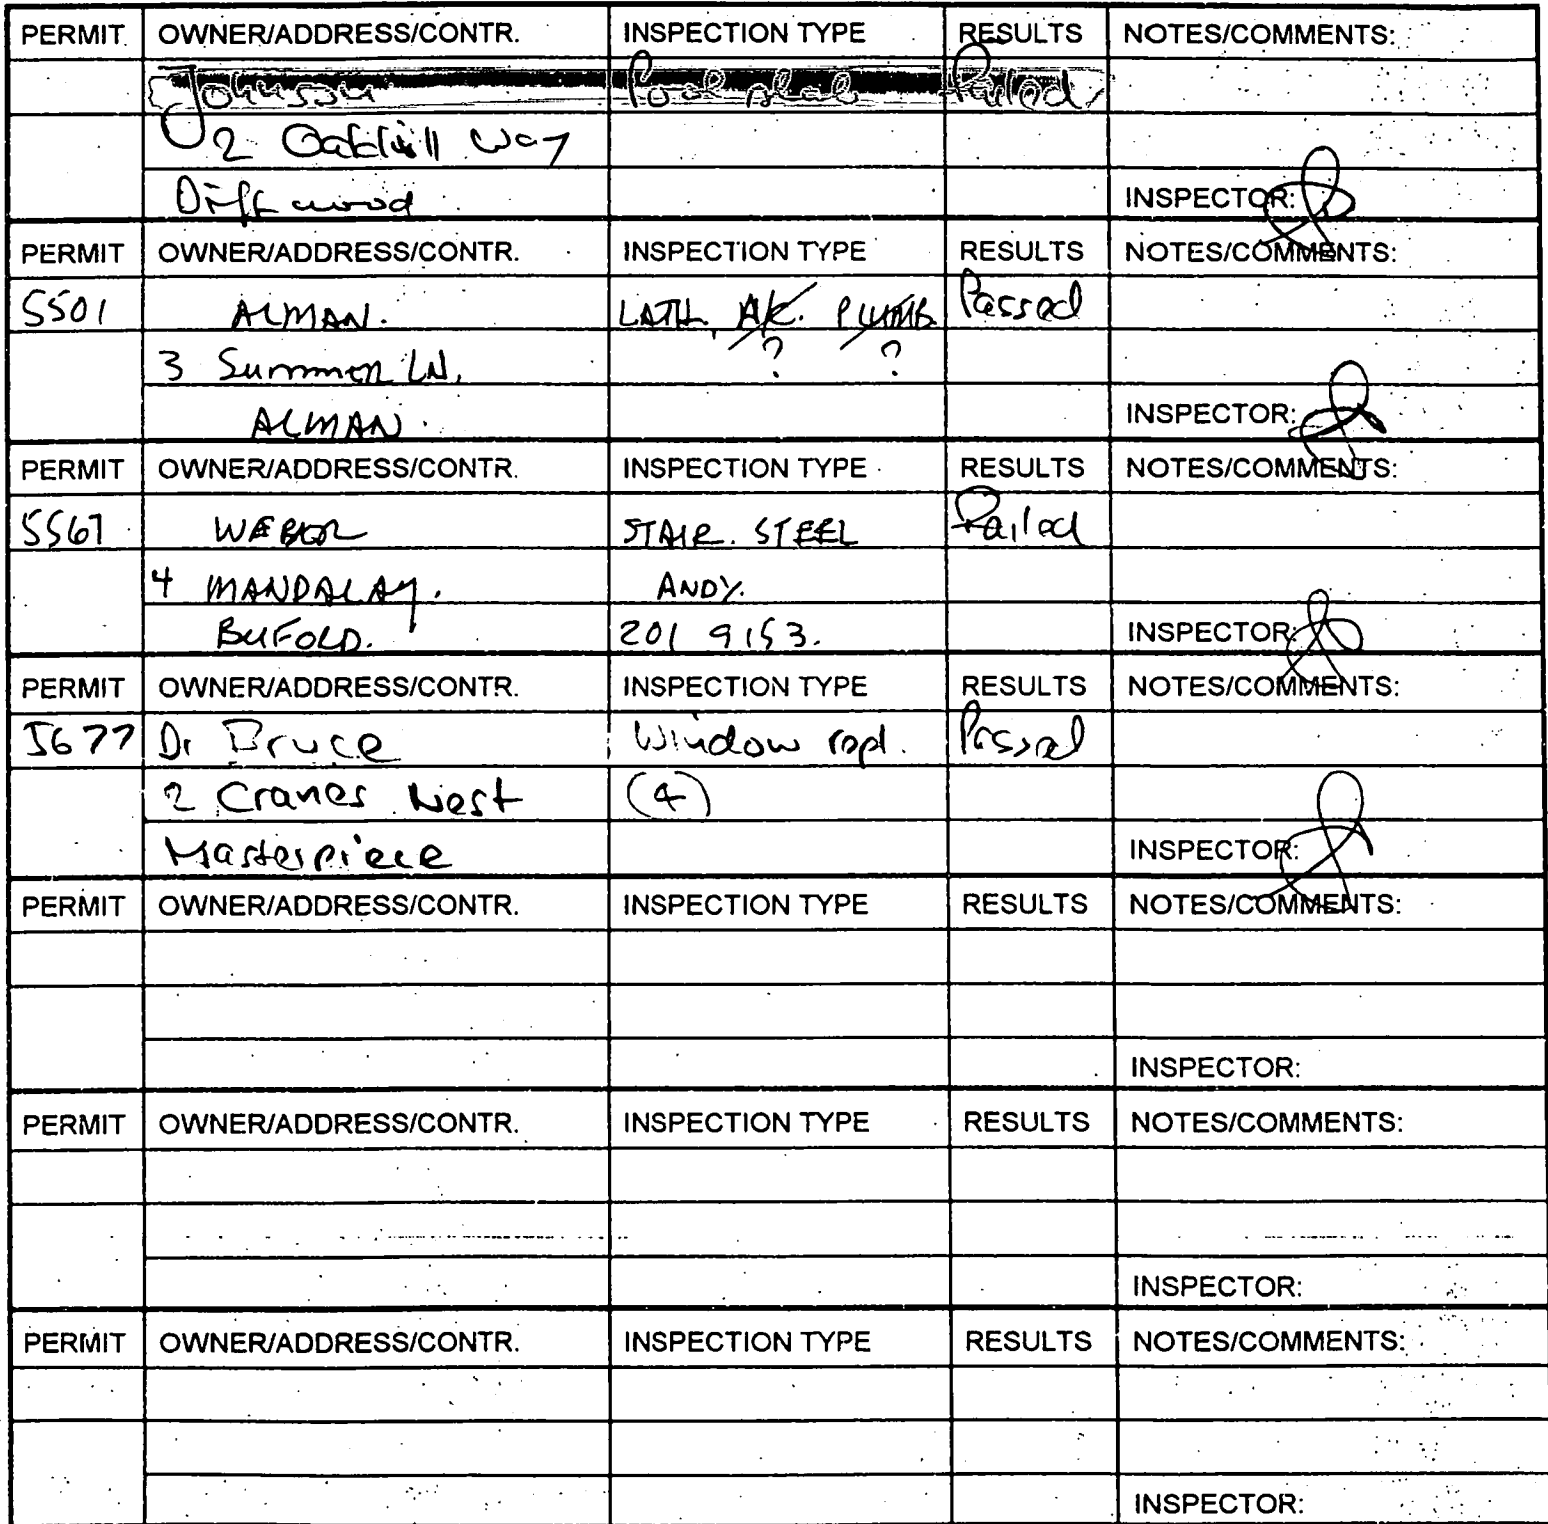 PERMIT OWNER/ADDRESS/CONTR. INSPECTION TYPE RESULTS NOTES/COMMENTS:
Johnson Pool slab Failed
2 Oakhill Way
Driftwood INSPECTOR:
PERMIT OWNER/ADDRESS/CONTR. INSPECTION TYPE RESULTS NOTES/COMMENTS:
5501 ALMAN. LATH, A/C. PLUMB. Passed
3 Summer LN. ? ?
ALMAN. INSPECTOR:
PERMIT OWNER/ADDRESS/CONTR. INSPECTION TYPE RESULTS NOTES/COMMENTS:
5561 WEBER STAIR. STEEL Failed
4 MANDALAY. ANDY.
BUFOLD. 201 9153. INSPECTOR:
PERMIT OWNER/ADDRESS/CONTR. INSPECTION TYPE RESULTS NOTES/COMMENTS:
5677 Dr Bruce Window repl. Passed
2 Cranes Nest (4)
Masterpiece INSPECTOR:
PERMIT OWNER/ADDRESS/CONTR. INSPECTION TYPE RESULTS NOTES/COMMENTS:
INSPECTOR:
PERMIT OWNER/ADDRESS/CONTR. INSPECTION TYPE RESULTS NOTES/COMMENTS:
INSPECTOR:
PERMIT OWNER/ADDRESS/CONTR. INSPECTION TYPE RESULTS NOTES/COMMENTS:
INSPECTOR: